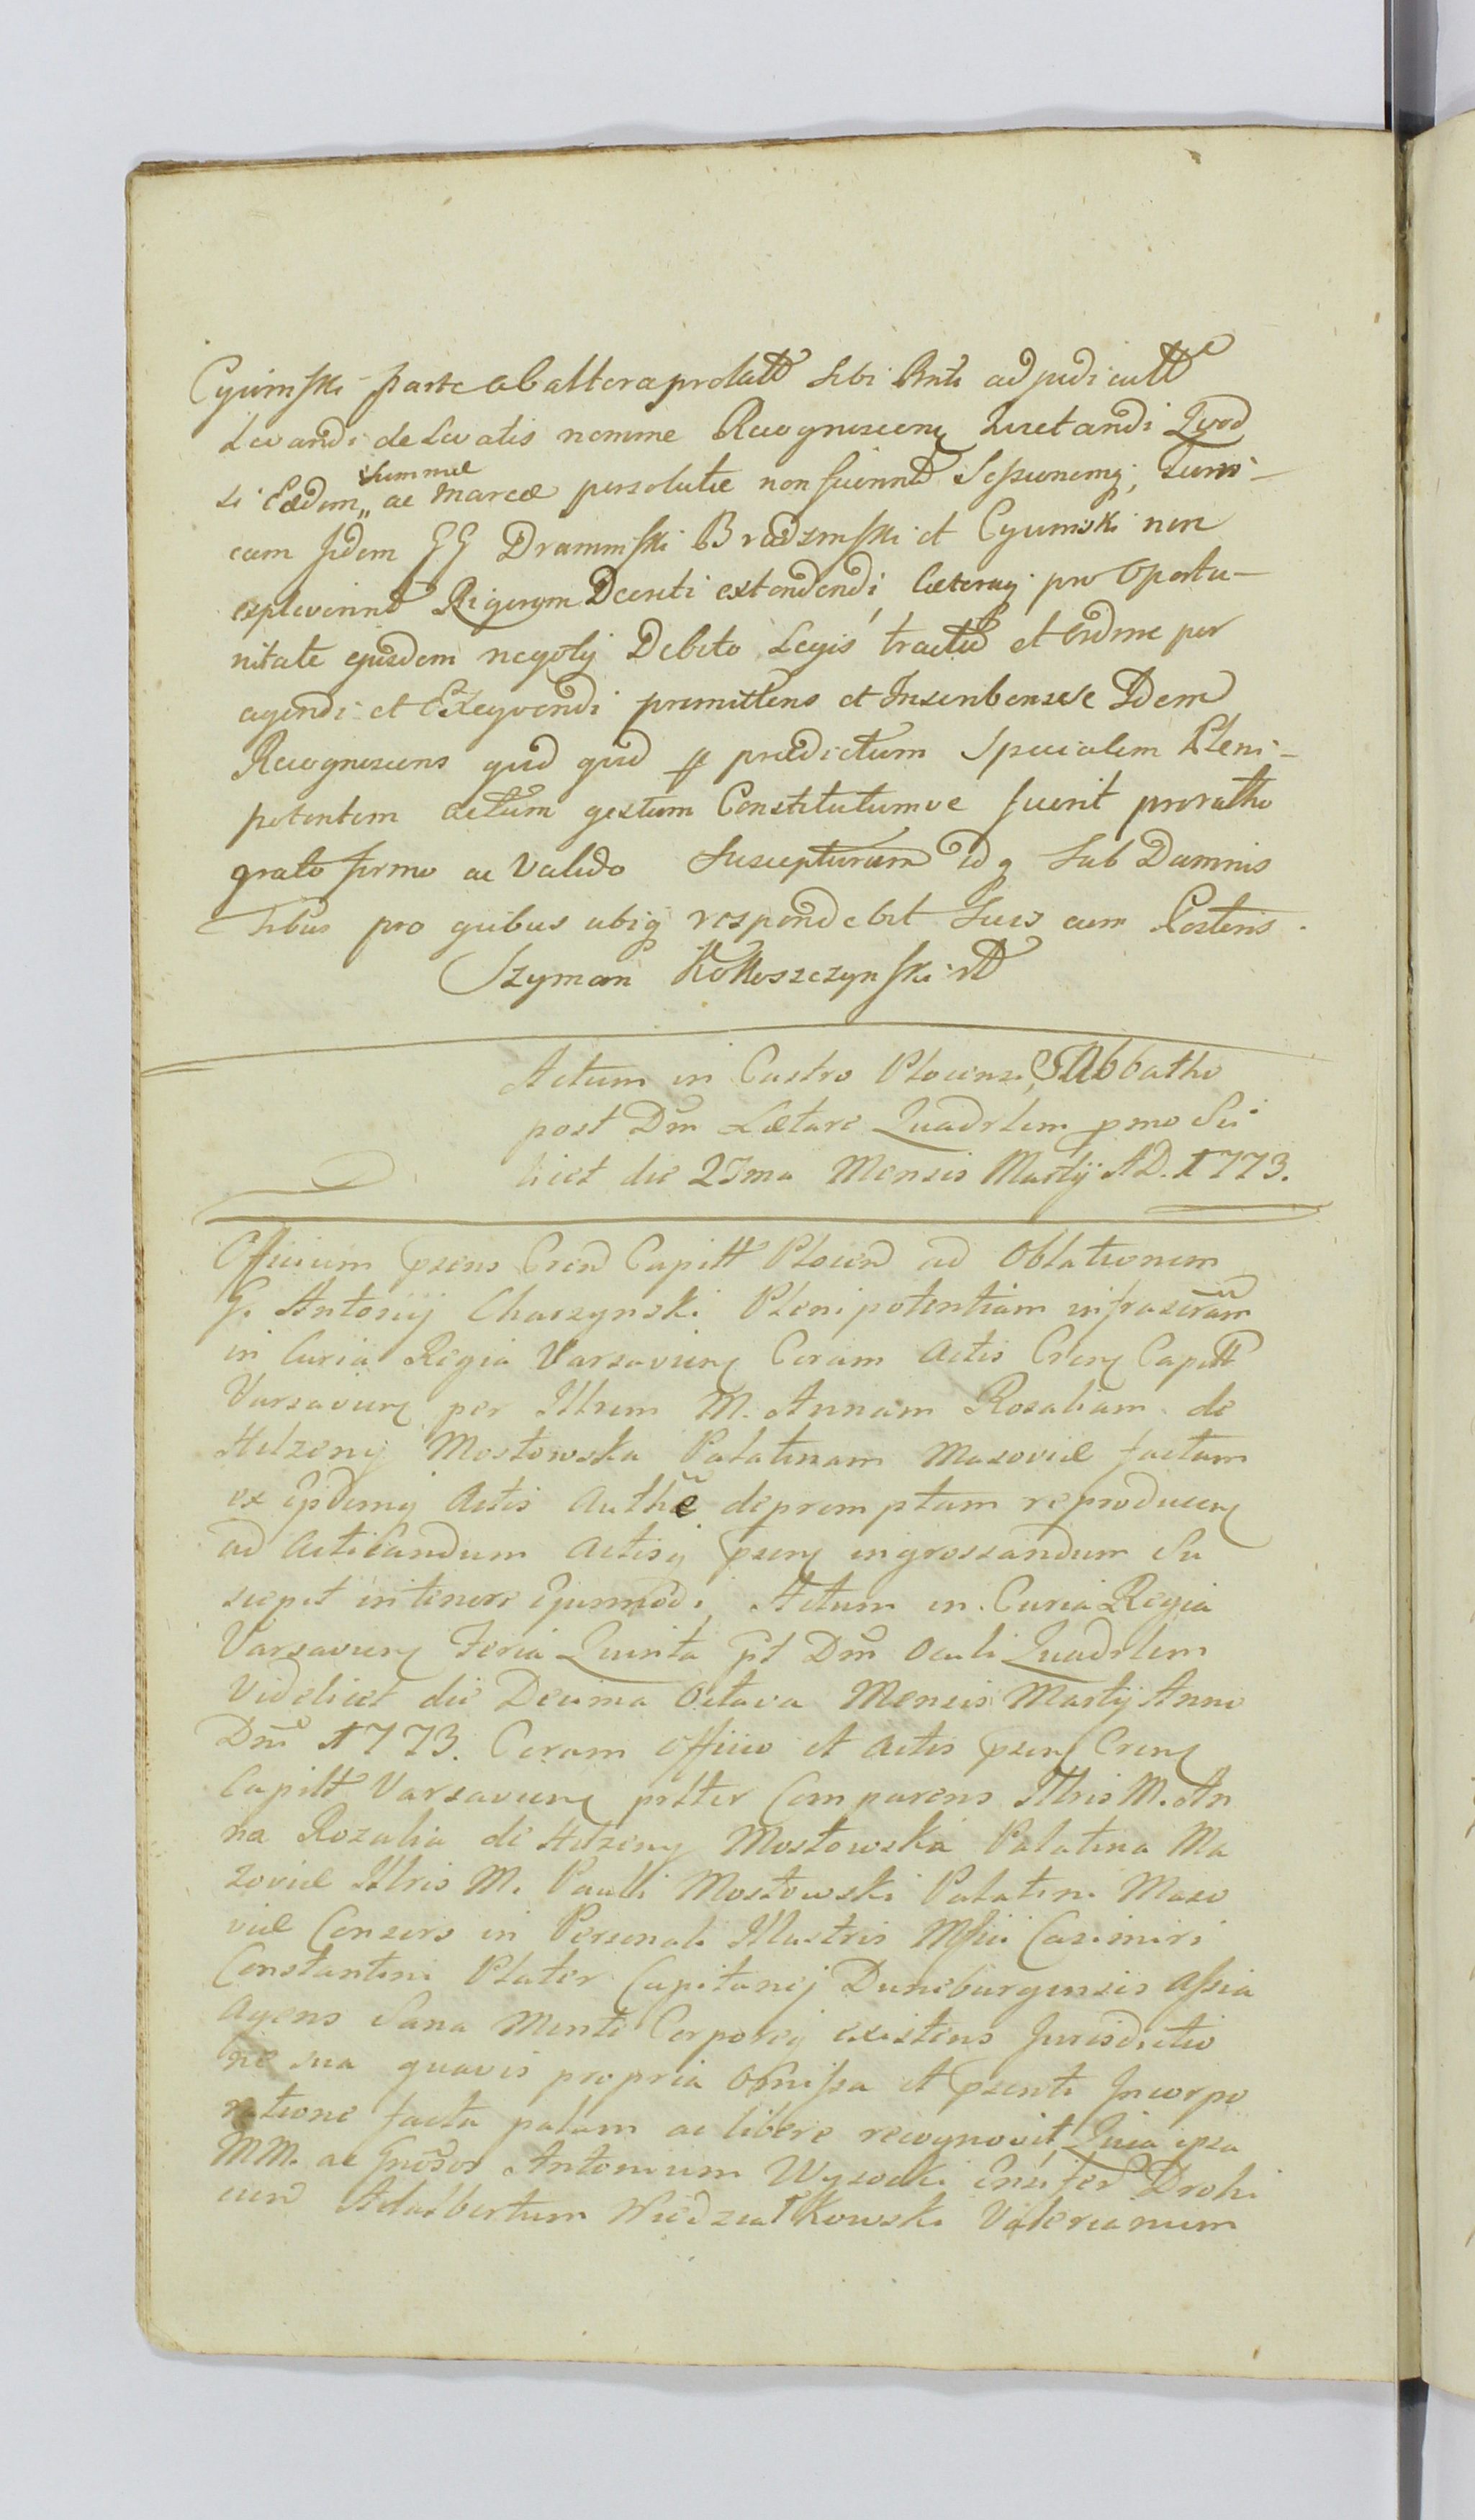 Cyuinski parte ab altera prolatt sibi Rnti adjudicatt
Levandi de Levatis nomine Recognoscenę Quietandi Qvod
si Eædem summæ ac Marcæ persolutæ non fuerint Sessionemq, turri-
cam Jidem GG Draminski Bradzinski et Cyumski non
expleverint Rigorem Decreti extendendi, cæteraq pro Oportu-
nitate ejusdem negotij Debito Legis tractu et ordine per
agendi et Exeqvendi promittens et Inscribens se Idem
Recognoscens qvid qvid p prædictum Specialem Pleni-
potentem actum gestum Constitutumve fuerit pro ratho
grato firmo ac Valido Suscepturum idq Sub Damnis
tibus pro quibus ubiq respondebit Suis cum Posteris.
Szyman Kokoszczynski
Actum in Castro Plocensi, SAbbatho
post Dm Lætare Quadrlem pmo Sci
licet die 27ma Mensis Martij AD. 1773.
Officium pzens Cren Capitt Plocen ad Oblationem
G. Antonij Chaczynski Plenipotentiam infrascram
in Curia Regia Varsavienę Coram Actis Crenę Capitt
Varsavienę per Illrem M. Annam Rosaliam de
Hilzenij Mostowska Palatinam Masoviæ factam
ex ijsdemq Actis Authe depromptam reproducenę
ad Acticandum Actisq pzenę ingrossandum Su
scepit in tenore Ejusmodi, Actum in Curia Regia
Varsavienę Feria Quinta pt Dm Oculi Quadrlem
Videlicet die Decima Octava Mensis Martij Anno
Dni 1773. Coram Officio et Actis pzenę Crenę
Capitt Varsavienę prltter Comparens Illris M. An
na Rozalia de Hilzenę Mostowska Palatina Ma
zoviæ Illris M. Pauli Mostowski Palatini Maso
viæ Consors in Personali Illustris Mfici Casimiri
Constantini Plater Capitanej Duneburgensis Assia
Agens Sana Mente Corporeq existens Jurisdictio
ne sua quavis propria omissa et pzenti Incorpo
ratione facta palam ac libere recognovit, Quia ipsa
MM. ac Gnosos Antonium Wysocki Ensifer Drohi
cien Adalbertum Niedzialkowski Valerianum